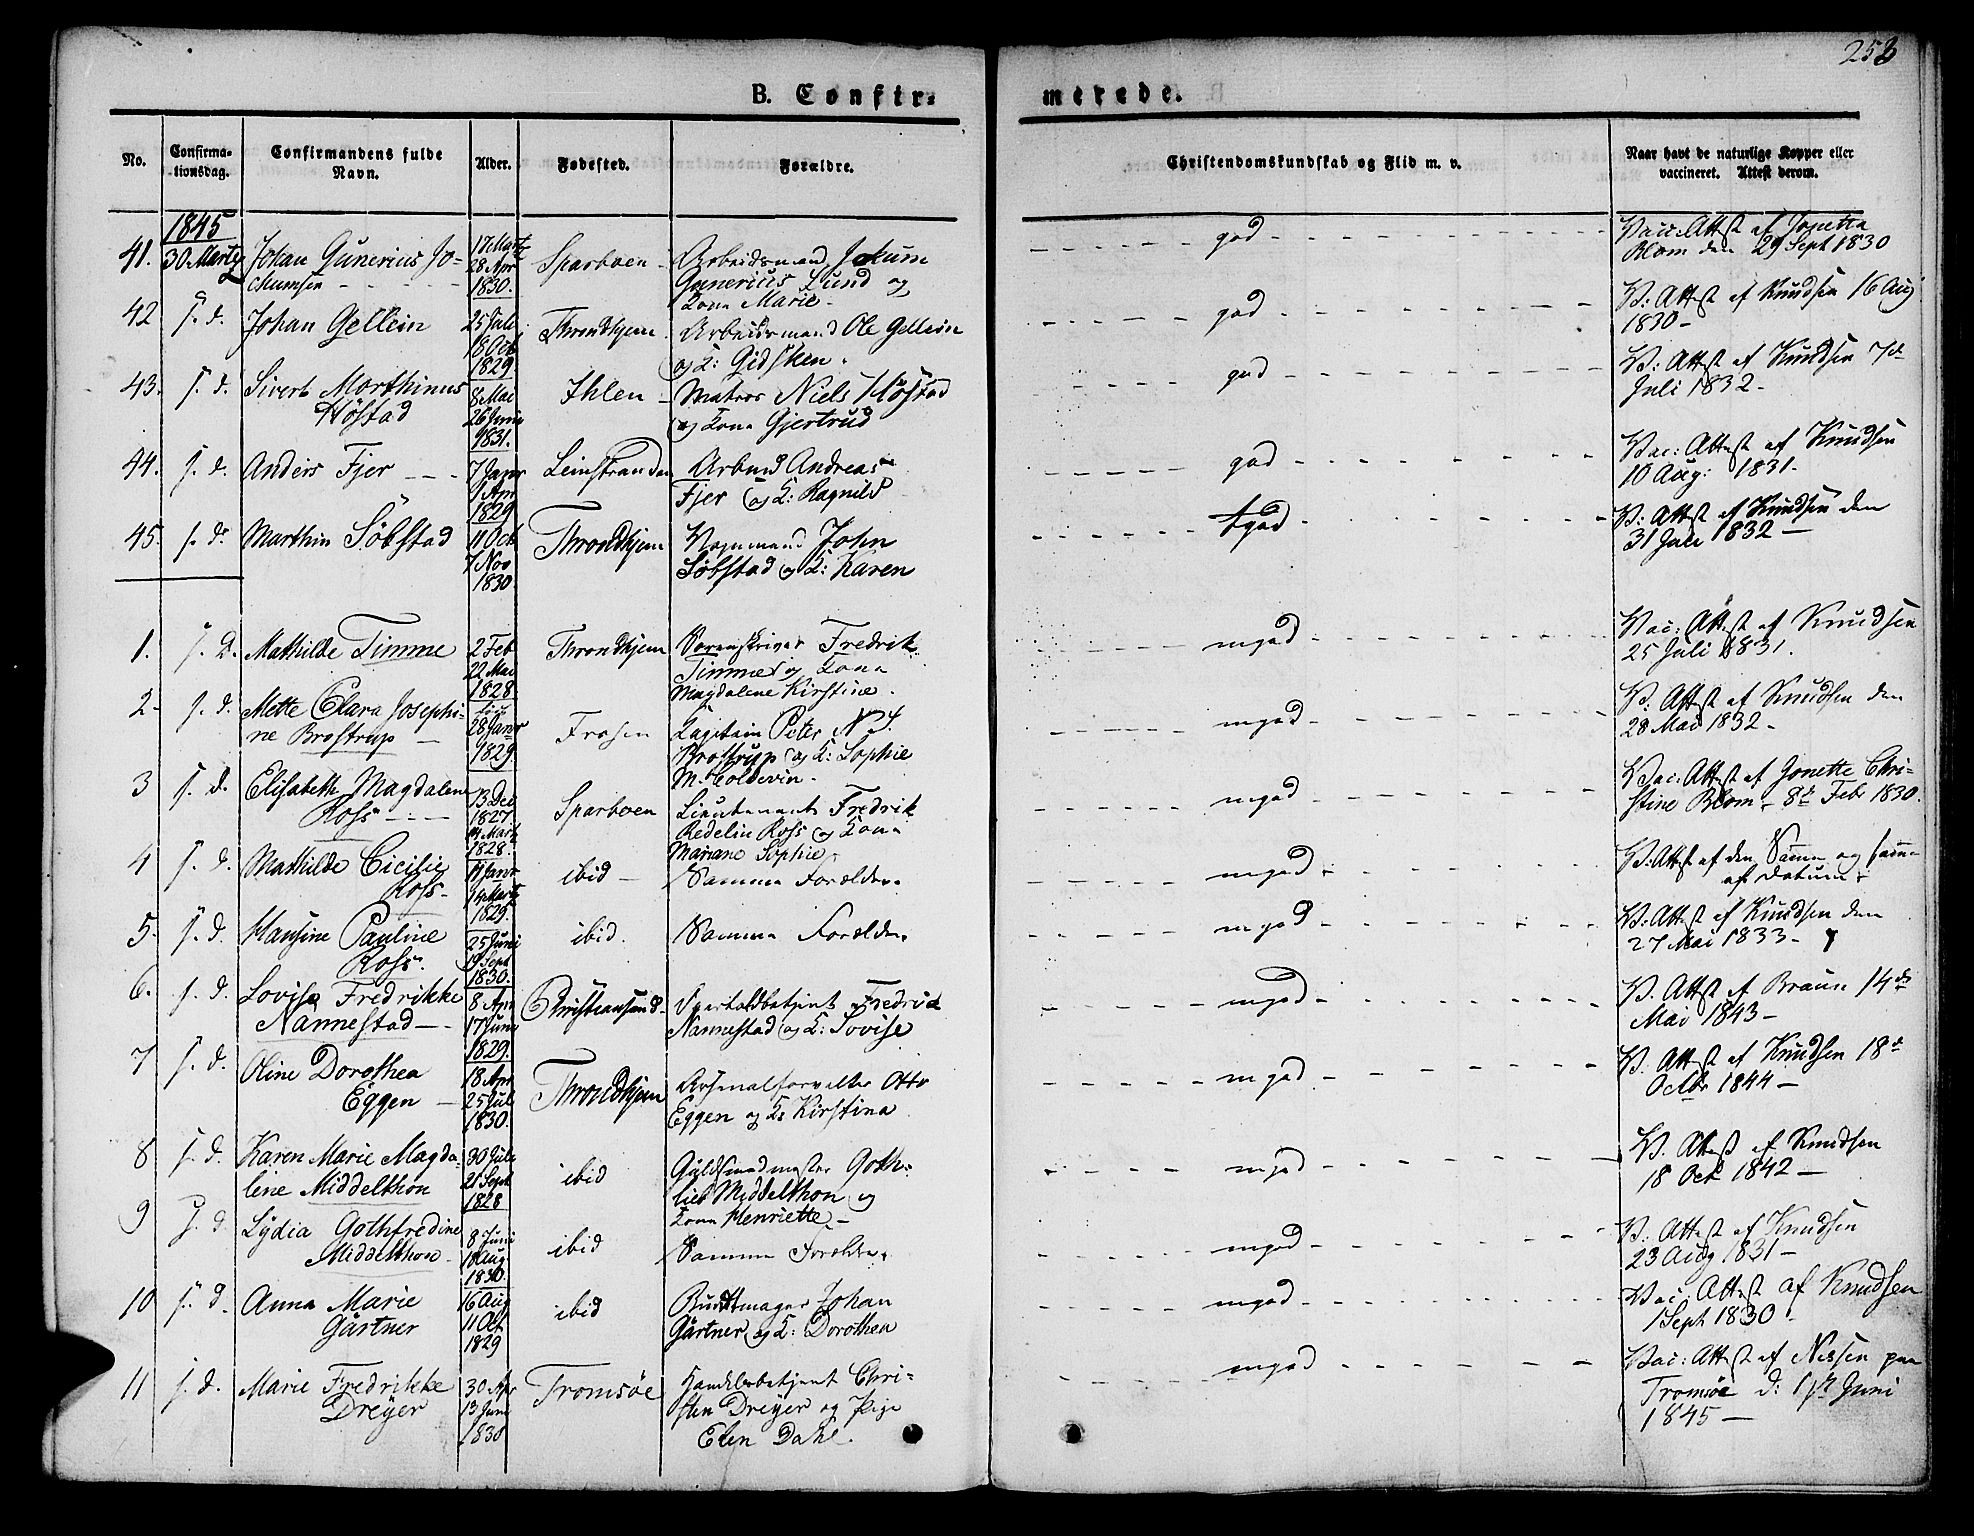 253
B. Confir-
merede.
No.
Confirma-
tionsdag.
Confirmandens fulde
Navn.
Alder.
Fødested.
Forældre.
Christendomskundskab og Flid m. v.
Naar havt de naturlige Kopper eller
vaccineret. Attest derom.
1845
41. 30 Marts Johan Gunerius Jo-
chumsen
17 Marts
28 Apr
1830.
Sparboen
Arbeidsmand Jokum
Gunerius Lund og
Kona Marie
god
Vacc. Attest af Jonetta
Blom den 29 Sept 1830
42 s. d. Johan Gellein
25 Juli
18 Oct
1829
Throndhjem
Arbeidsmand Ole Gellein
og K: Gidsken.
god
V: Attest af Knudsen 16 Aug
1830
43. s. d. Sivert Morthinus
Høstad
8 Mai
26 Juni
1831.
Ihlen
Matros Niels Høstad
og Kona Gjertrud
god
V: Attest af Knudsen 7de
Juli 1832
44. s. d. Anders Fjer
7 Janr
1 Apr
1829
Leinstranden
Arbmd Andreas
Fjer og K: Ragnild
god
Vac: Attest af Knudsen
10 Aug: 1831.
45. s. d. Marthin Søbstad
11 Oct
7 Nov
1830
Throndhjem
Vognmand John
Søbstad og K: Karen
tgod
V: Attest af Knudsen den
31 Juli 1832
1. s. d. Mathilde Timme
2 Feb
22 Mai
1828
Throndhjem
Sorenskriver Fredrik
Timme og Kona
Magdalene Kirstine.
mgod
Vac: Attest af Knudsen
25 Juli 1831.
2. s. d. Mette Clara Josephi-
ne Brostrup
28 Janr
1829
Frosen
Capitain Peter N. J.
Brostrup og K: Sophie
M. Coldevin
mgod
V: Attest af Knudsen den
28 Mai 1832
3 s. d. Elisabeth Magdalene
Ross
13 Dec
1827
14 Mart
1828
Sparboen
Lieutenant Fredrik
Redelin Ross og Kona
Mariane Sophie
mgod
Vac: Attest af Jonette Chri-
stine Blom 8de Febr 1830
4 s. d. Mathilde Cicilie
Ross
11 Janr
14 Marts
1829
ibid
Samme Forældre.
mgod
V: Attest af den Samme og samme
af Datum
5. s. d. Hansine Pauline
Ross.
25 Juni
19 Sept
1830.
ibid.
Samme Forældre.
mgod
V: Attest af Knudsen den
27 Mai 1833
6. s. d. Lovise Fredrikke
Nannestad
8 Apr
17 Juni
1829.
Christiansund
Overtoldbetjent Fredrik
Nannestad og K: Lovise
mgod
V. Attest af Braun 14de
Mai 1843
7 s. d. Oline Dorothea
Eggen
18 Apr
25 Jul
1830.
Throndhjem
Arsenalforvalter Otto
Eggen og K: Kirstina
mgod
V. Attest af Knudsen 18de
Octbr 1844
8 s. d. Karen Marie Magda-
lene Middelthon
30 Juli
21 Sept
1828
ibid
Guldsmedmester Goth-
lieb Middelthon og
Kona Henriette
mgod
V. Attest af Knudsen
18 Oct 1842
9 s. d. Lydia Gothfredine
Middelthon
8 Juni
18 Aug
1830
ibid
Samme Forældre.
mgod
V: Attest af Knudsen
23 Aug 1831
10 s. d. Anna Marie
Gärtner
16 Aug
11 Oct
1829
ibid
Buntmager Johan
Gärtner og K: Dorothea
mgod
Vac: Attest af Knudsen
1 Sept 1830.
11 s. d. Marie Fredrikke
Dreyer
30 Apr
13 Juni
1830
Tromsøe
Handelsbetjent Chri-
sten Dreyer og Pige
Elen Dahl.
mgod
Vac: Attest af Nissen paa
Tromsøe d: 1ste Juni
1845